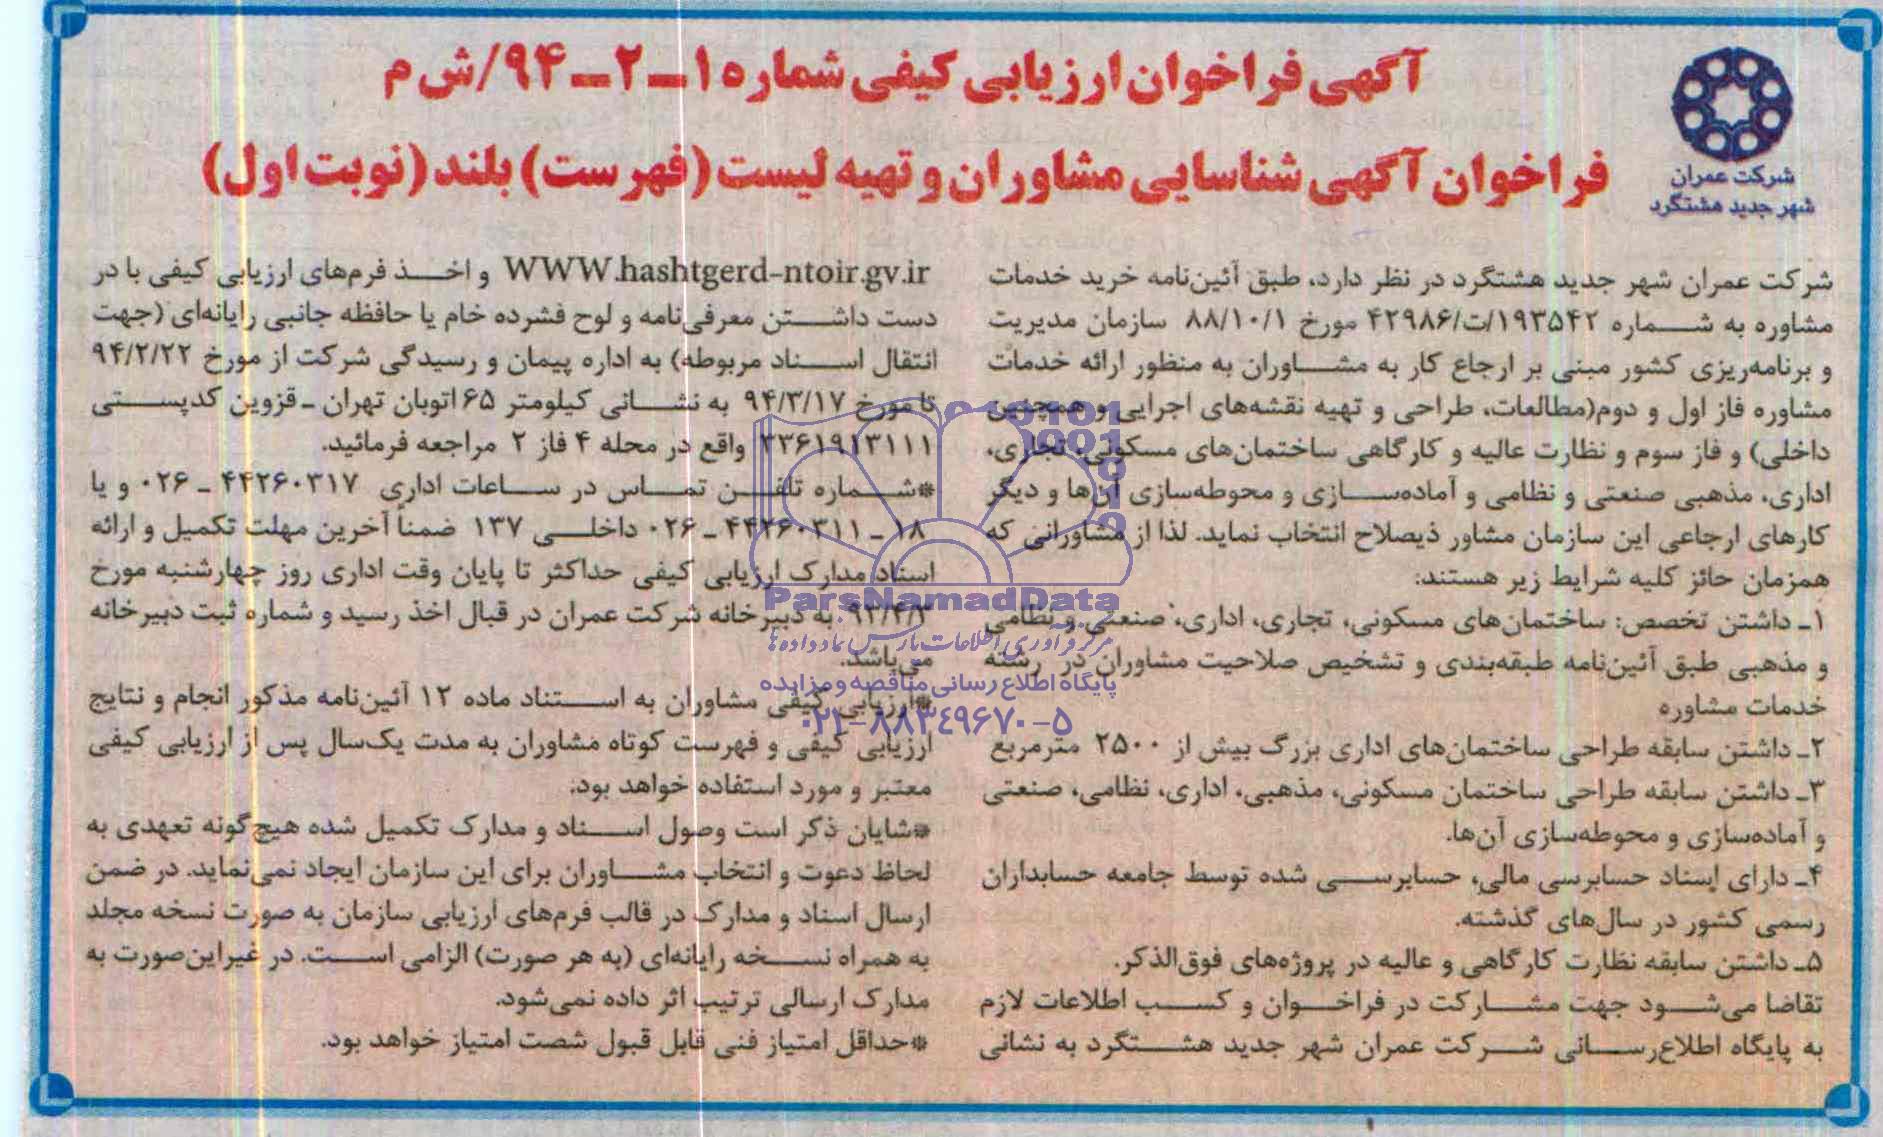 آگهی فراخوان ارزیابی کیفی شماره ۱ـ۲ـ۹۴/ش م
فراخوان آگهی شناسایی مشاوران و تهیه لیست (فهرست) بلند (نوبت اول)
شرکت عمران
شهر جدید هشتگرد
شرکت عمران شهر جدید هشتگرد در نظر دارد، طبق آئین‌نامه خرید خدمات
مشاوره به شماره ۱۹۳۵۴۲/ت/۴۲۹۸۶ مورخ ۸۸/۱۰/۱ سازمان مدیریت
و برنامه‌ریزی کشور مبنی بر ارجاع کار به مشاوران به منظور ارائه خدمات
مشاوره فاز اول و دوم(مطالعات، طراحی و تهیه نقشه‌های اجرایی و همچنین
داخلی) و فاز سوم و نظارت عالیه و کارگاهی ساختمان‌های مسکونی، تجاری،
اداری، مذهبی صنعتی و نظامی و آماده‌سازی و محوطه‌سازی آن‌ها و دیگر
کارهای ارجاعی این سازمان مشاور ذیصلاح انتخاب نماید. لذا از مشاورانی که
همزمان حائز کلیه شرایط زیر هستند:
۱ـ داشتن تخصص: ساختمان‌های مسکونی، تجاری، اداری، صنعتی و نظامی
و مذهبی طبق آئین‌نامه طبقه‌بندی و تشخیص صلاحیت مشاوران در رشته
خدمات مشاوره
۲ـ داشتن سابقه طراحی ساختمان‌های اداری بزرگ بیش از ۲۵۰۰ مترمربع
۳ـ داشتن سابقه طراحی ساختمان مسکونی، مذهبی، اداری، نظامی، صنعتی
و آماده‌سازی و محوطه‌سازی آن‌ها.
۴ـ دارای اسناد حسابرسی مالی، حسابرسی شده توسط جامعه حسابداران
رسمی کشور در سال‌های گذشته.
۵ـ داشتن سابقه نظارت کارگاهی و عالیه در پروژه‌های فوق‌الذکر.
تقاضا می‌شود جهت مشارکت در فراخوان و کسب اطلاعات لازم
به پایگاه اطلاع‌رسانی شرکت عمران شهر جدید هشتگرد به نشانی
WWW.hashtgerd-ntoir.gv.ir و اخذ فرم‌های ارزیابی کیفی با در
دست داشتن معرفی‌نامه و لوح فشرده خام یا حافظه جانبی رایانه‌ای (جهت
انتقال اسناد مربوطه) به اداره پیمان و رسیدگی شرکت از مورخ ۹۴/۲/۲۲
تا مورخ ۹۴/۳/۱۷ به نشانی کیلومتر ۶۵ اتوبان تهران ـ قزوین کدپستی
۳۳۶۱۹۱۳۱۱۱ واقع در محله ۴ فاز ۲ مراجعه فرمائید.
*شماره تلفن تماس در ساعات اداری ۴۴۲۶۰۳۱۷ ـ ۰۲۶ و یا
۱۸ ـ ۴۴۲۶۰۳۱۱ ـ ۰۲۶ داخلی ۱۳۷ ضمناً آخرین مهلت تکمیل و ارائه
اسناد مدارک ارزیابی کیفی حداکثر تا پایان وقت اداری روز چهارشنبه مورخ
به دبیرخانه شرکت عمران در قبال اخذ رسید و شماره ثبت دبیرخانه
می‌باشد.
*ارزیابی کیفی مشاوران به استناد ماده ۱۲ آئین‌نامه مذکور انجام و نتایج
ارزیابی کیفی و فهرست کوتاه مشاوران به مدت یک‌سال پس از ارزیابی کیفی
معتبر و مورد استفاده خواهد بود.
*شایان ذکر است وصول اسناد و مدارک تکمیل شده هیچ‌گونه تعهدی به
لحاظ دعوت و انتخاب مشاوران برای این سازمان ایجاد نمی‌نماید. در ضمن
ارسال اسناد و مدارک در قالب فرم‌های ارزیابی سازمان به صورت نسخه مجلد
به همراه نسخه رایانه‌ای (به هر صورت) الزامی است. در غیراین‌صورت به
مدارک ارسالی ترتیب اثر داده نمی‌شود.
*حداقل امتیاز فنی قابل قبول شصت امتیاز خواهد بود.
ParsNamadData
مرکز فرآوری اطلاعات پارس نماد داده‌ها
پایگاه اطلاع رسانی مناقصه و مزایده
۰۲۱-۸۸۳۴۹۶۷۰-۵